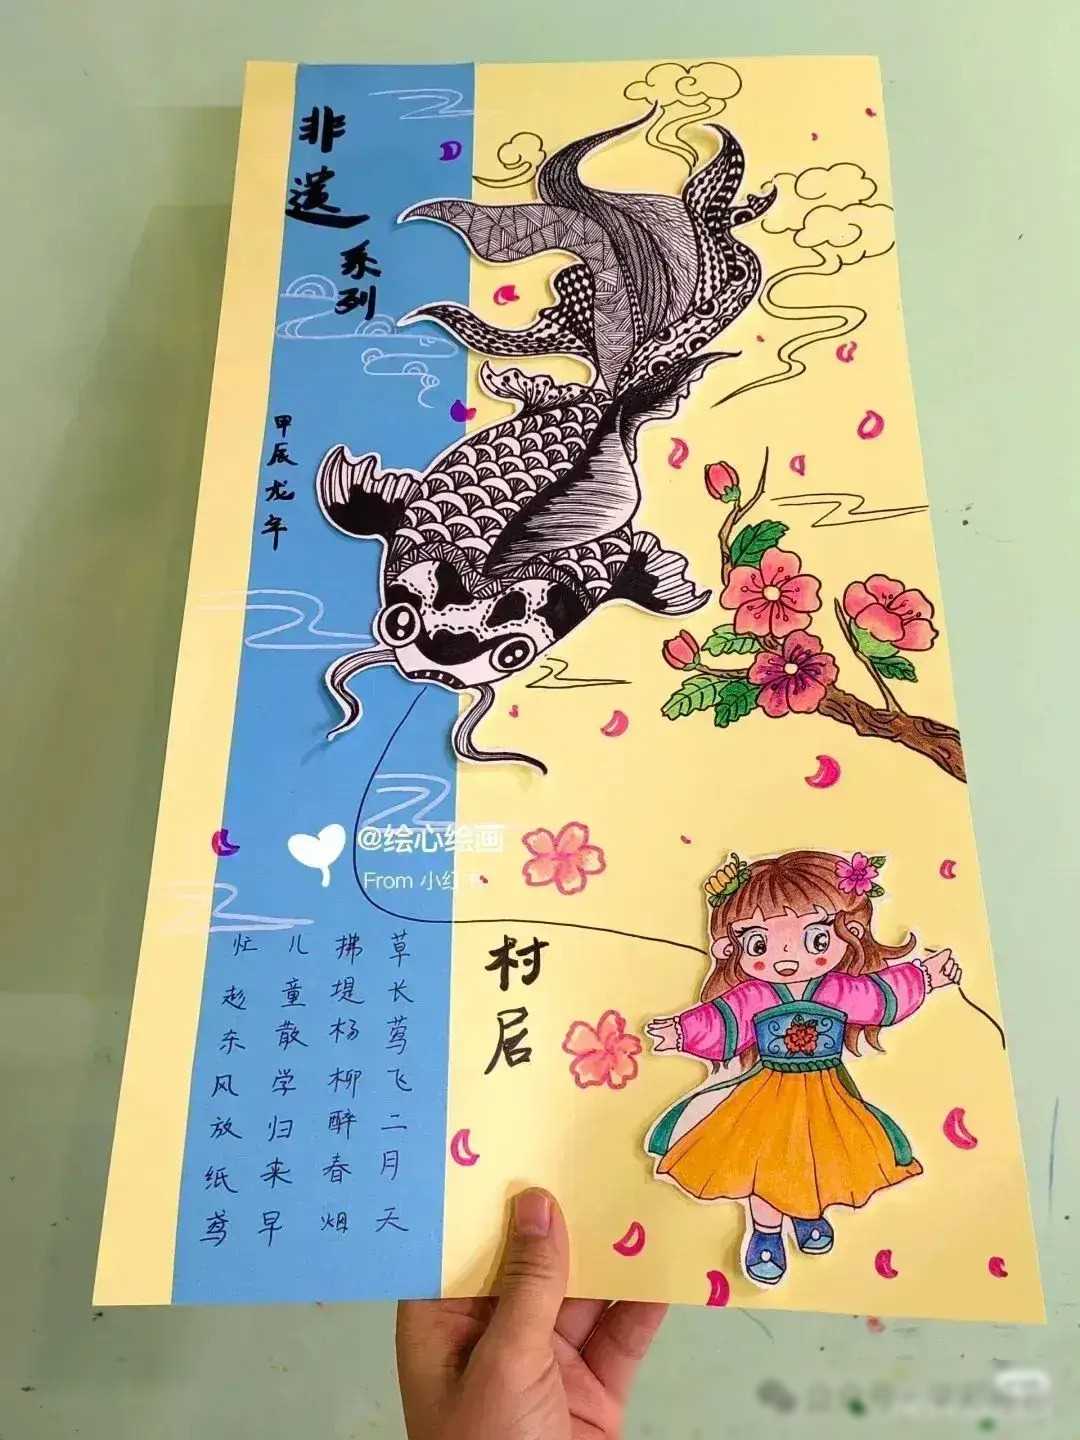 非遗
系列
甲辰龙年
草长莺飞二月天
拂堤杨柳醉春烟
儿童散学归来早
忙趁东风放纸鸢
村居
@绘心绘画
From 小红书